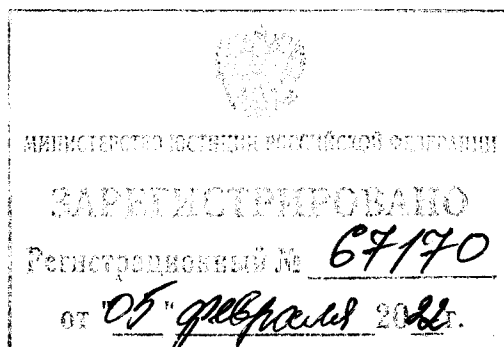 МИНИСТЕРСТВО ЮСТИЦИИ РОССИЙСКОЙ ФЕДЕРАЦИИ
ЗАРЕГИСТРИРОВАНО
Регистрационный № 67170
от "05" февраля 2022г.